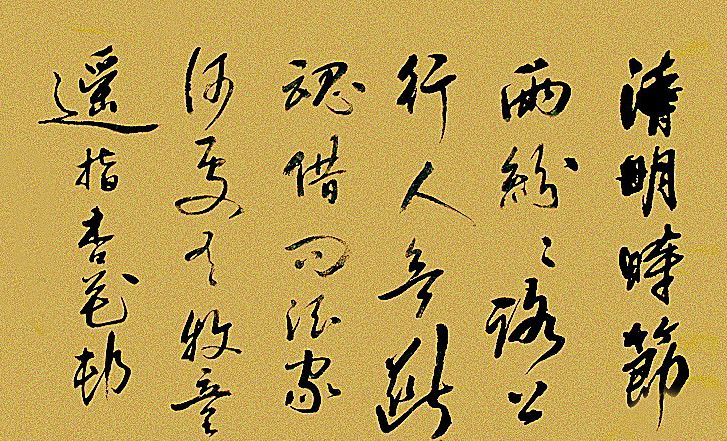 清明時節
雨紛々路上
行人欲斷
魂借問酒家
何處有牧童
遙指杏花村